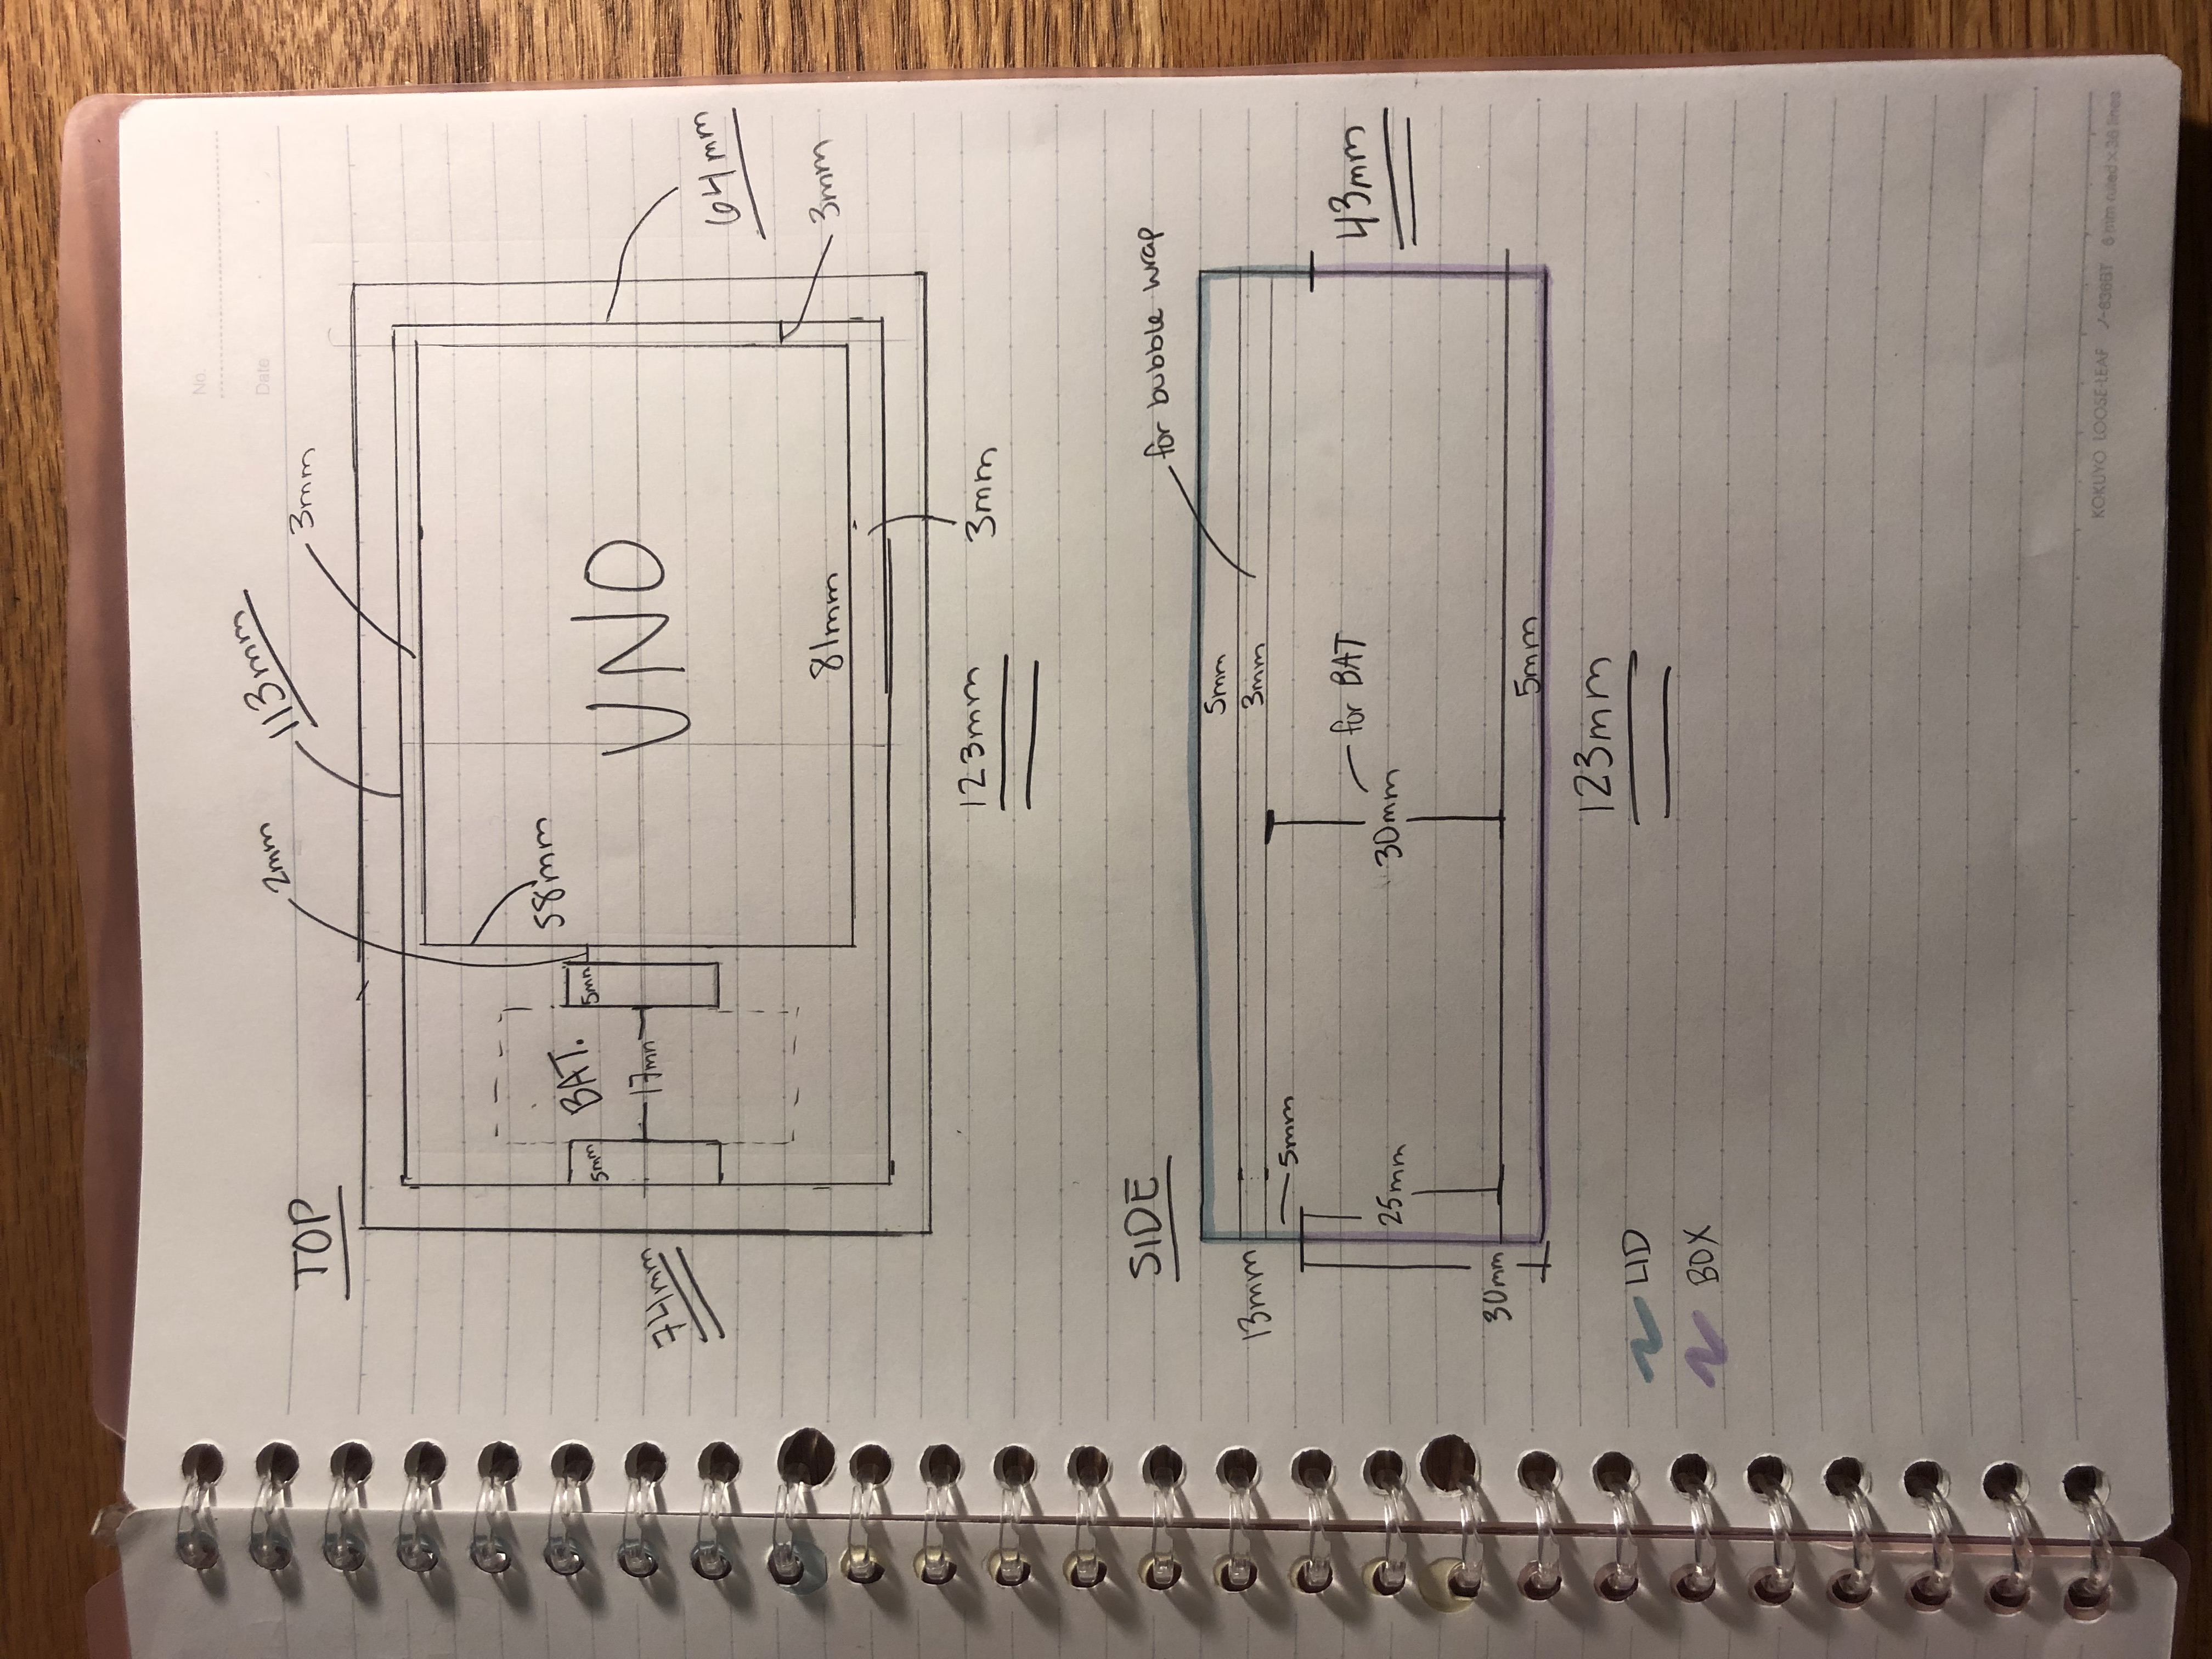 No.
Date
2mm
113mm
3mm
TOP
58mm
BAT.
5mm
5mm
UNO
17mm
74mm
64mm
81mm
3mm
123mm
3mm
SIDE
for bubble wrap
5mm
13mm
3mm
5mm
for BAT
43mm
25mm
30mm
30mm
5mm
123mm
LID
BOX
KOKUYO LOOSE-LEAF ノ-836BT 6 mm ruled×36 lines